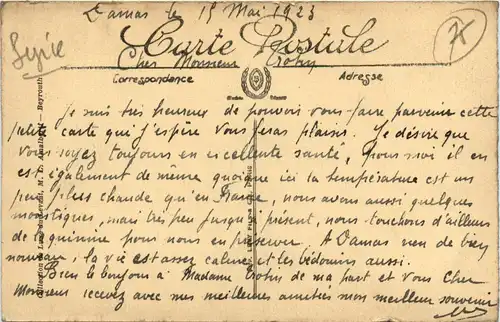 Damas le 15 Mai 1923
Syrie
Carte Postale
Cher Monsieur
Correspondance
Adresse
Je suis très heureux de pouvoir vous faire parvenir cette
petite carte qui j'espère vous feras plaisir. Je désire que
vous soyez toujours en excellente santé, pour moi il en
est également de même quoique ici la température est un
peu plus chaude qu'en France, nous avons aussi quelques
moustiques, mais très peu jusqu'à présent, nous touchons d'ailleurs
de la quinine pour nous en préserver. A Damas rien de bien
nouveau, la vie est assez calme et les bédouins aussi.
Bien le bonjour à Madame de ma part et vous Cher
Monsieur recevez avec mes meilleures amitiés mon meilleur souvenir